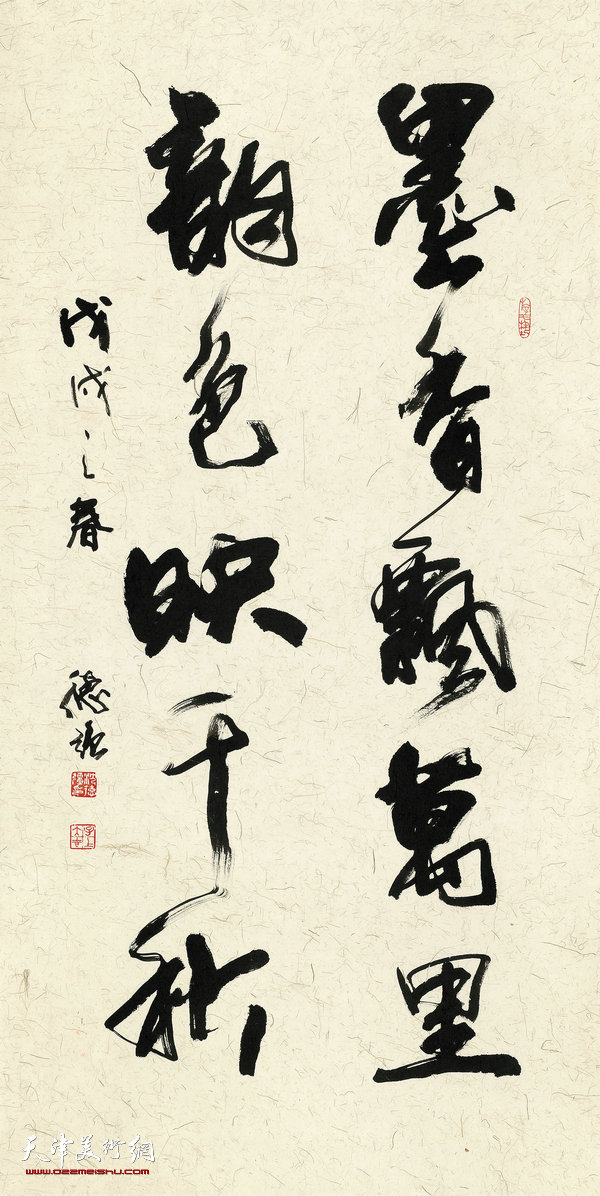 墨香飄萬里
韵色映千秋
戊戌之春
德
天津美術網
www.022meishu.com